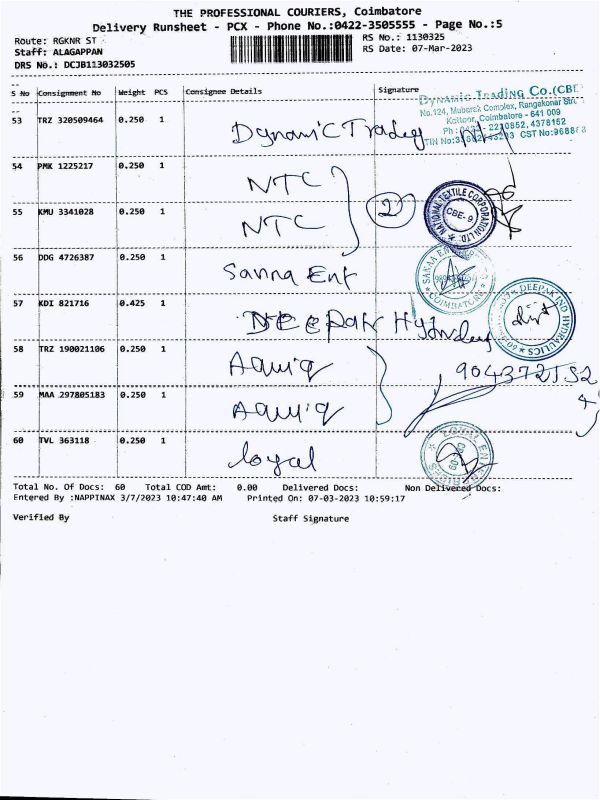 THE PROFESSIONAL COURIERS, Coimbatore
Delivery Runsheet - PCX - Phone No.:0422-3505555 - Page No.:5
Route: RGKNR ST
RS No.: 1130325
Staff: ALAGAPPAN
RS Date: 07-Mar-2023
DRS No.: DCJB113032505
S No Consignment No Weight PCS Consignee Details Signature
Dynamic Trading Co.(CBE
No.124, Mubarak Complex, Rangakonar Str
Kattoor, Coimbatore - 641 009
53 TRZ 320509464 0.250 1 Dynamic Trading
54 PMK 1225217 0.250 1 NTC
2
NATIONAL TEXTILE CORPORATION LTD.
CBE-9
55 KMU 3341028 0.250 1 NTC
56 DDG 4726387 0.250 1 Sanna Ent
COIMBATORE
57 KDI 821716 0.425 1 DEEpak Hydraley
DEEPAK IND HYDRAULICS
58 TRZ 190021106 0.250 1
59 MAA 297805183 0.250 1
60 TVL 363118 0.250 1 loyal
Total No. Of Docs: 60 Total COD Amt: 0.00 Delivered Docs: Non Delivered Docs:
Entered By :NAPPINAX 3/7/2023 10:47:40 AM Printed On: 07-03-2023 10:59:17
Verified By Staff Signature